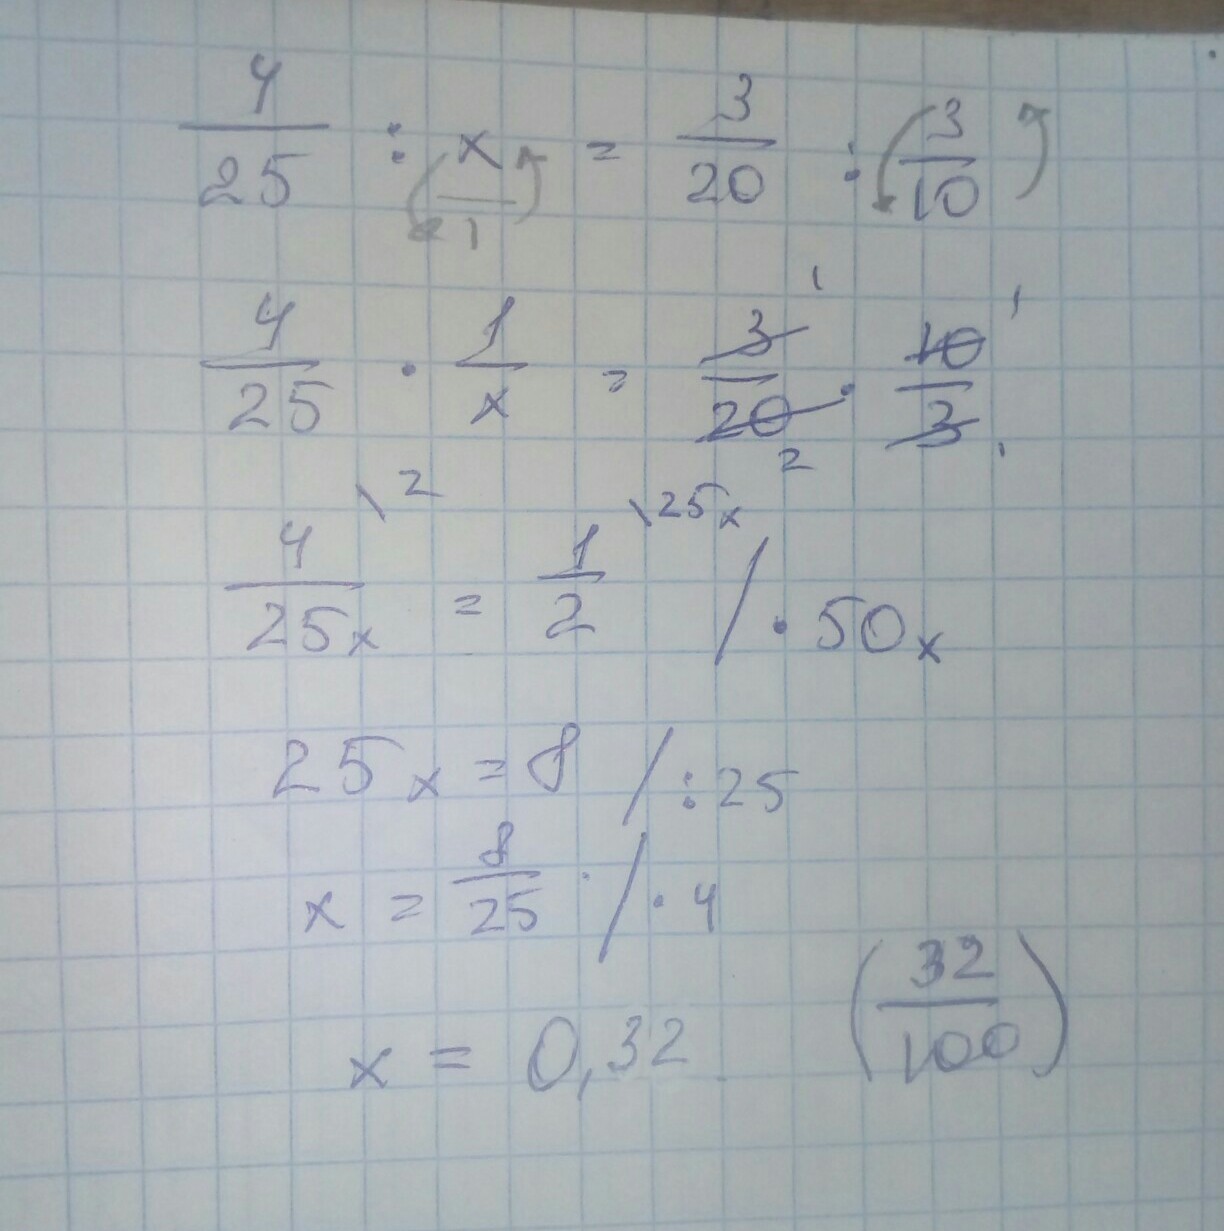 4/25 : x/1 = 3/20 : 3/10
4/25 · 1/x = 3/20 · 10/3 1 1 2 1
4/25x \2 = 1/2 \25x / · 50x
25x = 8 / : 25
x = 8/25 / · 4
x = 0,32 (32/100)